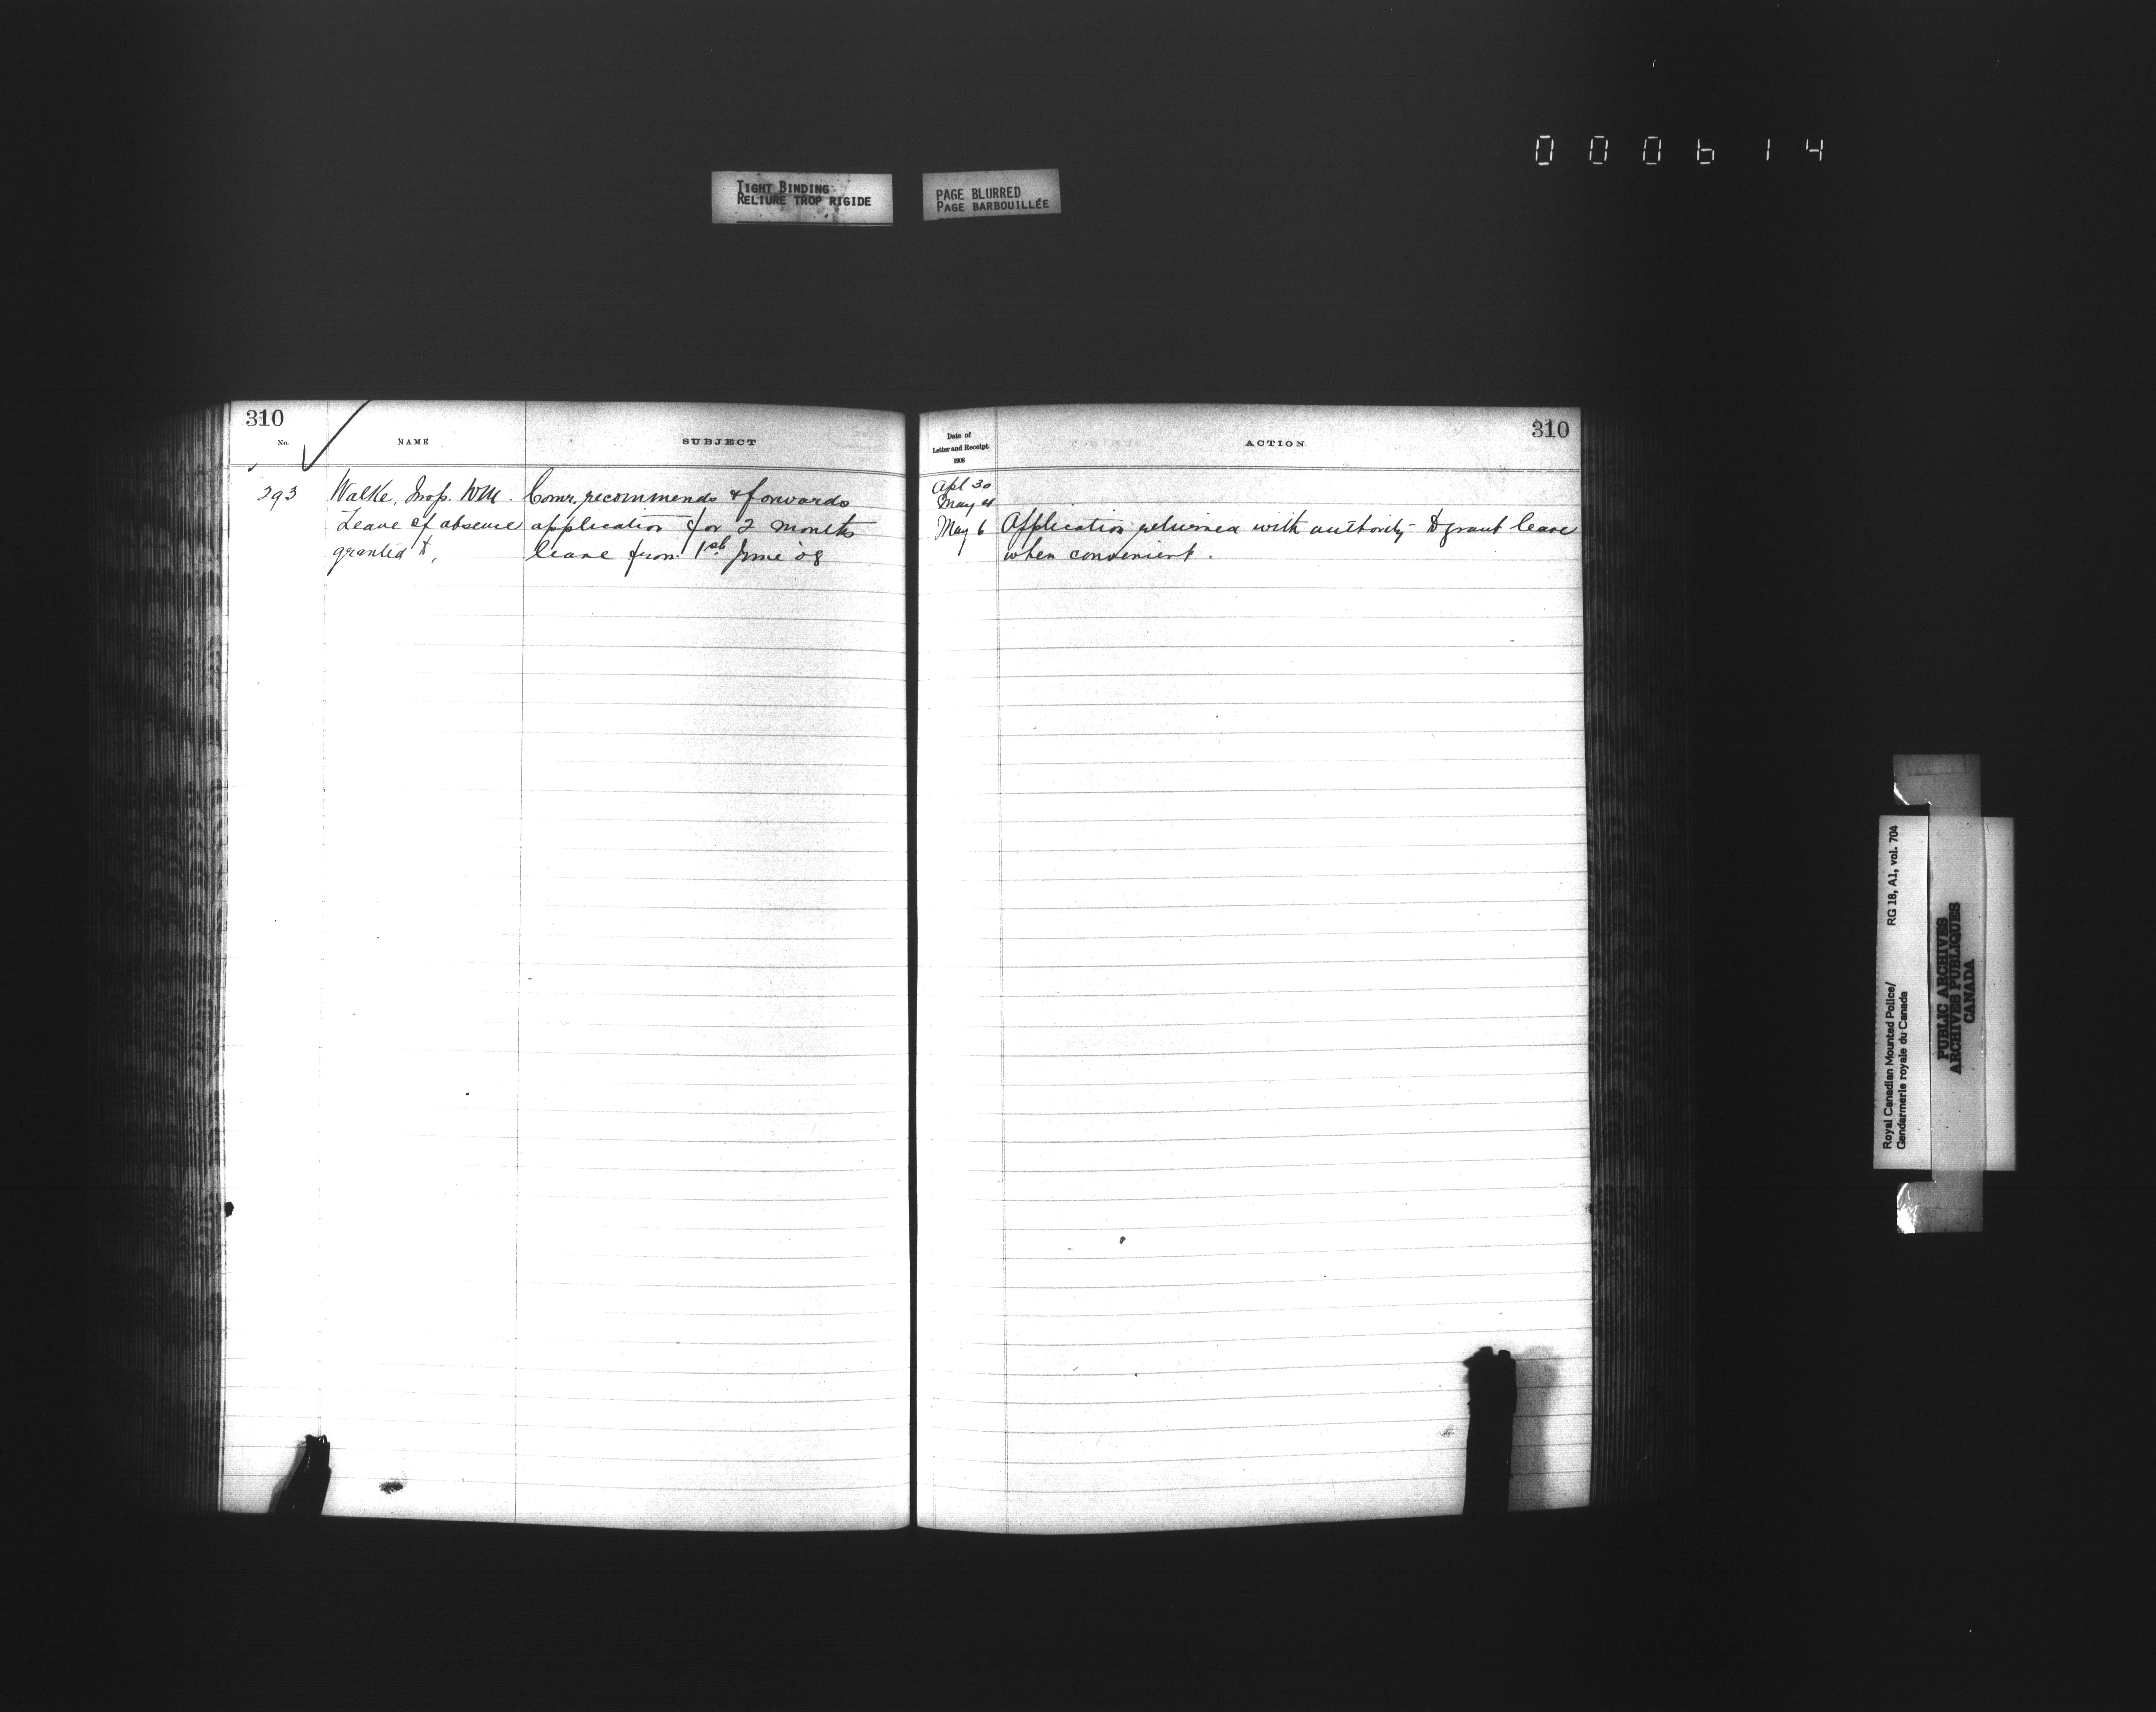 000614
TIGHT BINDING
RELIURE TROP RIGIDE
PAGE BLURRED
PAGE BARBOUILLÉE
310
No.
NAME
SUBJECT
293
Walke, Insp. WM.
Leave of absence
granted to,
Comr. recommends & forwards
application for 2 months
leave from 1st June '08
310
Date of
Letter and Receipt
1908
ACTION
Apl 30
May 4
May 6 Application returned with authority to grant leave
when convenient.
Royal Canadian Mounted Police/ RG 18, A1, vol. 704
Gendarmerie royale du Canada
PUBLIC ARCHIVES
ARCHIVES PUBLIQUES
CANADA